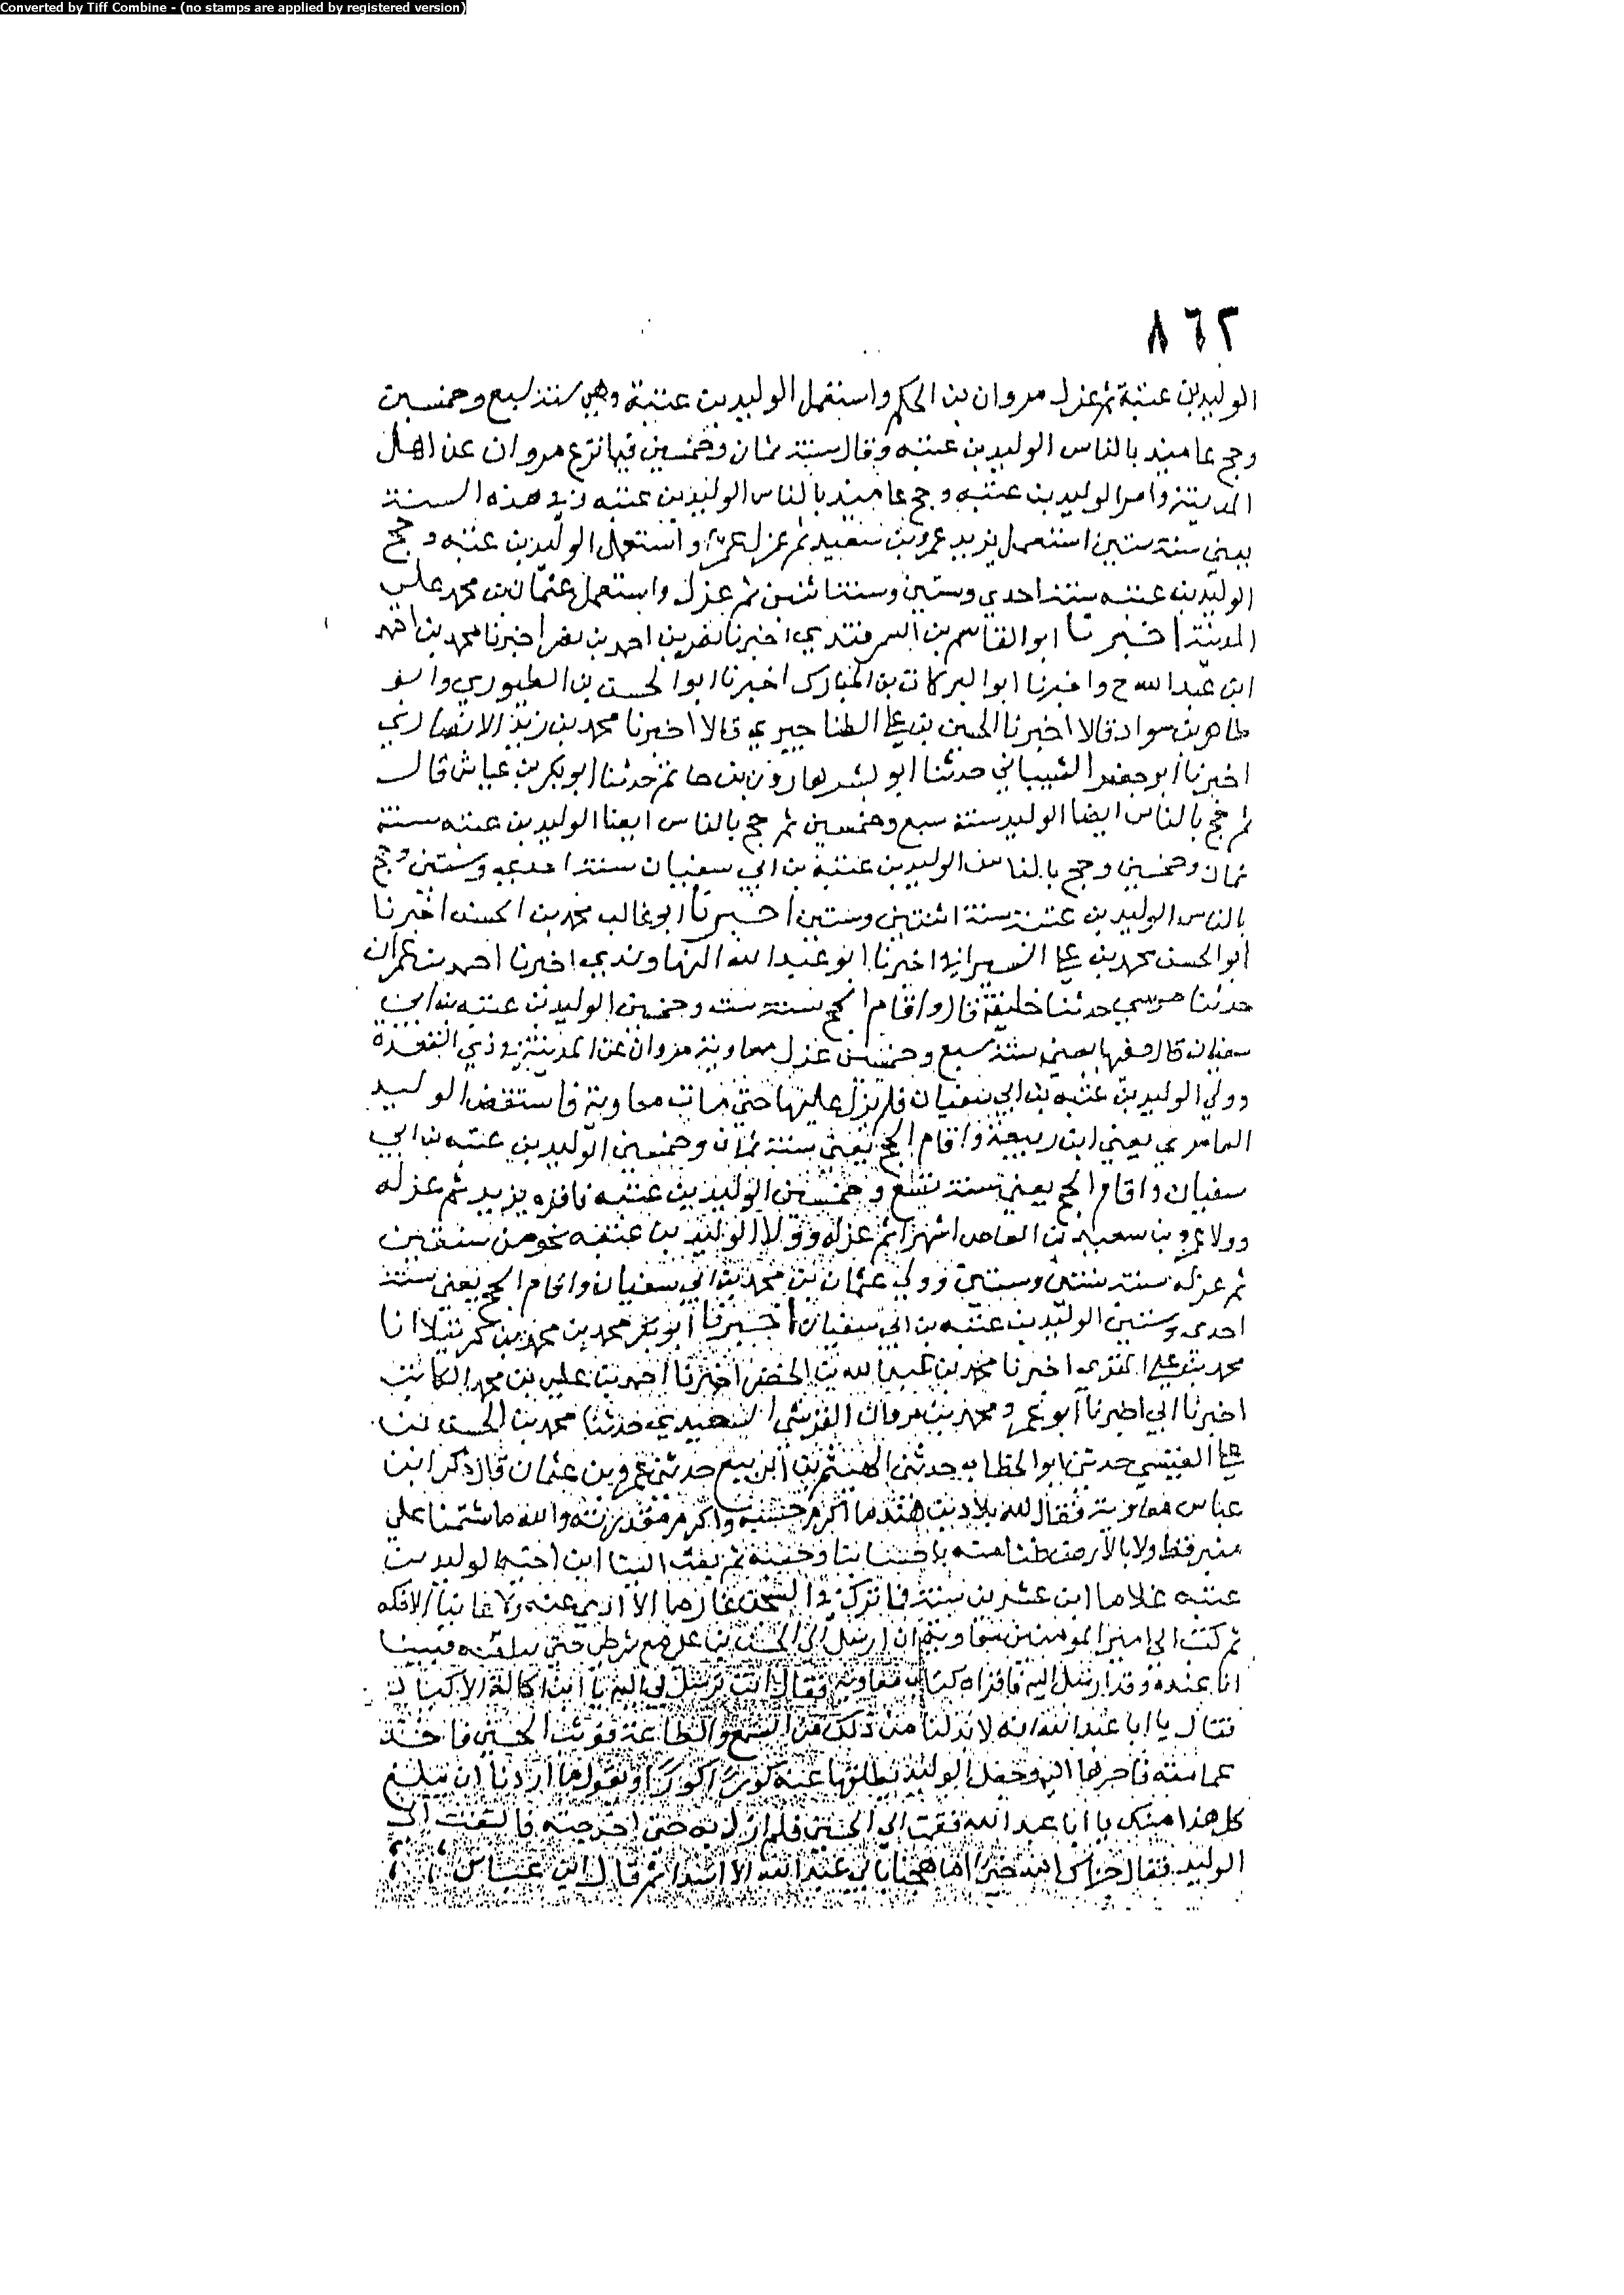 Converted by Tiff Combine - (no stamps are applied by registered version)
٨٦٢
الوليد بن عتبة ثم عزل مروان بن الحكم واستعمل الوليد بن عتبة وهي سنة سبع وخمسين
وحج عاميذ بالناس الوليد بن عتبه وقال سنة ثمان وخمسين فيها نزع مروان عن اهل
المدينة وامر الوليد بن عتبه وحج عاميذ بالناس الوليد بن عتبه في هذه السنة
يعني سنة ستين استعمل يزيد عمرو بن سعيد ثم عزل عمرا واستعمل الوليد بن عتبه وحج
الوليد بن عتبه سنة احدي وستين وسنة اثنين ثم عزل واستعمل عثمان بن محمد علي
المدينة اخبرنا ابو القاسم بن السمرقندي اخبرنا نصر بن احمد بن نصر اخبرنا محمد بن احمد
ابن عبد الله ح واخبرنا ابو البركات بن المبارك اخبرنا ابو الحسن بن الطيوري وابو
طاهر بن سواد قالا اخبرنا الحسين بن علي الطناجيري قالا اخبرنا محمد بن زيد الانصاري
اخبرنا ابو جعفر الشيباني حدثنا ابو بشر هارون بن حاتم حدثنا ابو بكر بن عياش قال
ثم حج بالناس ايضا الوليد سنة سبع وخمسين ثم حج بالناس ايضا الوليد بن عتبه سنة
ثمان وخمسين وحج بالناس الوليد بن عتبة بن ابي سفيان سنة احدي وستين وحج
بالناس الوليد بن عتبة سنة اثنتين وستين اخبرنا ابو غالب محمد بن الحسن اخبرنا
ابو الحسن محمد بن علي السيرافي اخبرنا ابو عبد الله النهاوندي اخبرنا احمد بن عمران
حدثنا موسي حدثنا خليفة قال واقام الحج سنة ست وخمسين الوليد بن عتبه بن ابي
سفيان قال وفيها يعني سنة سبع وخمسين عزل معاوية مروان عن المدينة في ذي القعدة
وولي الوليد بن عتبه بن ابي سفيان فلم يزل عليها حتي مات معاوية فاستقضا الوليد
العامري يعني ابن ربيعة واقام الحج يعني سنة ثمان وخمسين الوليد بن عتبه بن ابي
سفيان واقام الحج يعني سنة تسع وخمسين الوليد بن عتبه فاقره يزيد ثم عزله
وولا عمرو بن سعيد بن العاص اشهرا ثم عزله وولا الوليد بن عتبه نحو من سنتين
ثم عزله سنة ثنتين وستين وولي عثمان بن محمد بن ابي سفيان واقام الحج يعني سنة
احدي وستين الوليد بن عتبه بن ابي سفيان اخبرنا ابو بكر محمد بن محمد بن كرتيلا انا
محمد بن علي المقري اخبرنا محمد بن عبيد الله بن الخضر اخبرنا احمد بن علي بن محمد الكاتب
اخبرنا ابي اخبرنا ابو عمرو محمد بن مروان القرشي السعيدي حدثنا محمد بن الحسن بن
علي القيسي حدثني ابو الخطاب حدثني الهيثم بن الربيع حدثني عمرو بن عثمان قال ذكر ابن
عباس معاوية فقال لله بلاد بن هند ما اكرم حسبه واكرم مقدرته والله ما شتمنا علي
منبر قط ولا بالارض ضنا منه باحسابنا وحسبه ثم بعث الينا ابن اخته الوليد بن
عتبه غلاما ابن عشرين سنة فما ترك في السجن غارما الا ادي عنه ولا عانيا الا فكه
ثم كتب الي امير المومنين معاوية ان ارسل الي الحسين بن علي مع شرطي حتي يبلغنه فبينا
انا عنده وقد ارسل اليه فاقراه كتاب معاوية فقال انت ترسل بي اليه يا ابن اكالة الاكباد
فقال يا ابا عبد الله انه لا بد لنا من ذلك من السمع والطاعة فوثب الحسين فاخذ
عمامته فاجرها اليه وجعل الوليد يطلقها عنه كورا كورا ويقول ما اردنا ان يبلغ
كل هذا منك يا ابا عبد الله فقمت الي الحسين فلم ازل به حتي اخرجته فالتفت الي
الوليد فقال جزاك الله خيرا ما هجنا بابي عبد الله الا اسدا ثم قال ابن عباس